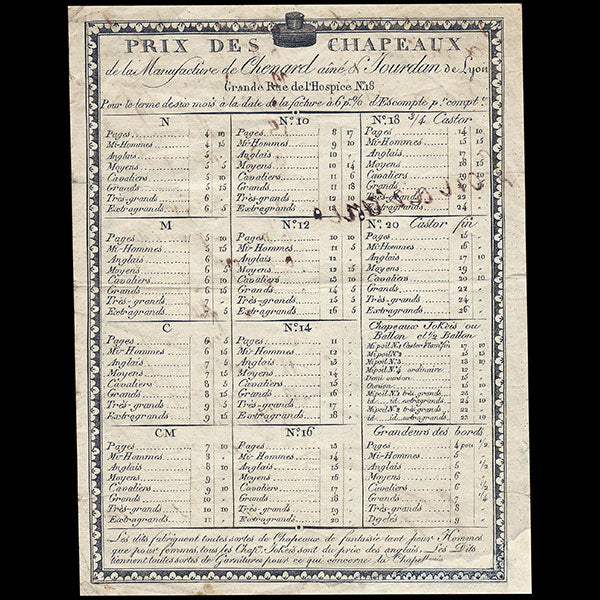 PRIX DES CHAPEAUX
de la Manufacture de Chenard aîné & Jourdan de Lyon
Grande Rue de l'Hospice N.18
Pour le terme de six mois à la date de la facture à 6 p.% d'Escompte p.r compt.t
N
Pages 4 10
Mi-Hommes 4 15
Anglais 5
Moyens 5 5
Cavaliers 5 10
Grands 5 15
Très-grands 6
Extragrands 6 5
N.o 10
Pages 8 17
Mi-Hommes 9 10
Anglais 10
Moyens 10 14
Cavaliers 11 6
Grands 11 18
Très-grands 12
Extragrands
N.o 18 3/4 Castor
Pages 14 10
Mi-Hommes 15 15
Anglais 17
Moyens 18 15
Cavaliers 19 10
Grands
Très-grands 22
Extragrands 24
M
Pages 5 10
Mi-Hommes 5 15
Anglais 6
Moyens 6 5
Cavaliers 6 10
Grands 6 15
Très-grands 7
Extragrands 7 5
N.o 12
Pages 10 10
Mi-Hommes 11 5
Anglais 12
Moyens 12 15
Cavaliers 13 10
Grands 14 5
Très-grands 15
Extragrands 16 5
N.o 20 Castor fin
Pages 15
Mi-Hommes 16
Anglais 17 10
Moyens 19
Cavaliers 20 10
Grands 22
Très-grands 24
Extragrands 26
C
Pages 6 5
Mi-Hommes 6 15
Anglais 7 5
Moyens 7 15
Cavaliers 8 5
Grands 8 15
Très-grands 9 5
Extragrands 9 15
N.o 14
Pages 11
Mi-Hommes 12
Anglais 13
Moyens 14
Cavaliers 15
Grands 16
Très-grands 17
Extragrands 18
Chapeaux JoKeis ou
Ballon et 1/2 Ballon
Mi poil N.o 1 Castor
Mi poil N.o 2
Mi poil N.o 3
Mi poil N.o 4 ordinaire
Demi ourson
Ourson
Mi poil N.o 1 très grands
id. id. extragrands
Mi poil N.o 2 très grands
id. id. extragrands
CM
Pages 7 10
Mi-Hommes 8
Anglais 8 10
Moyens 9
Cavaliers 9 10
Grands 10
Très-grands 10 10
Extragrands 11
N.o 16
Pages 13
Mi-Hommes 14
Anglais 15
Moyens 16
Cavaliers 17
Grands 18
Très-grands 19
Extragrands 20
Grandeurs des bords
Pages 4 pou. 1/2
Mi-Hommes 5
Anglais 5 1/2
Moyens 6
Cavaliers 6 1/2
Grands 7 1/4
Très-grands 8
Dgeles 9
Les dits fabriquent toutes sortes de Chapeaux de fantaisie tant pour Hommes
que pour femmes, tous les Chap.x JoKeis sont du prix des anglais. Les Dits
tiennent toutes sortes de Garnitures pour ce qui concerne la Chapellerie